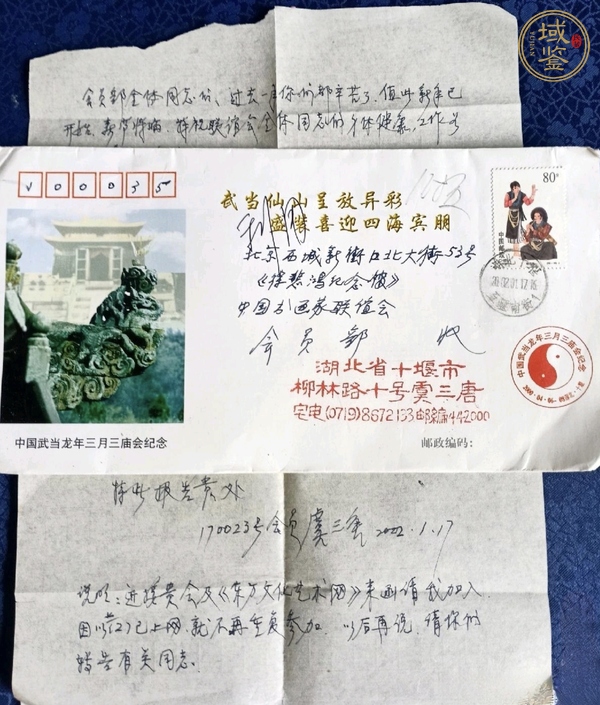 域鉴
YUJIAN
会员部全体同志们、过去一年你们都辛苦了，值此新年已
开始，春节将临，特祝联谊会全体同志们身体健康，工作
V00035
武当仙山呈放异彩
盛装喜迎四海宾朋
80分
中国邮政
北京西城新街口北大街53号
《徐悲鸿纪念馆》
中国书画家联谊会
会员部 收
湖北省十堰市
柳林路十号虞三唐
宅电(0719)8672133邮编442000
中国武当龙年三月三庙会纪念
中国武当龙年三月三庙会纪念
邮政编码：
特此报告贵处
170023号会员虞三唐 2002.1.17
说明：近接贵会及《东方文化艺术网》来函请我加入，
因以前已上网，就不再重复参加，以后再说，请你们
转告有关同志。